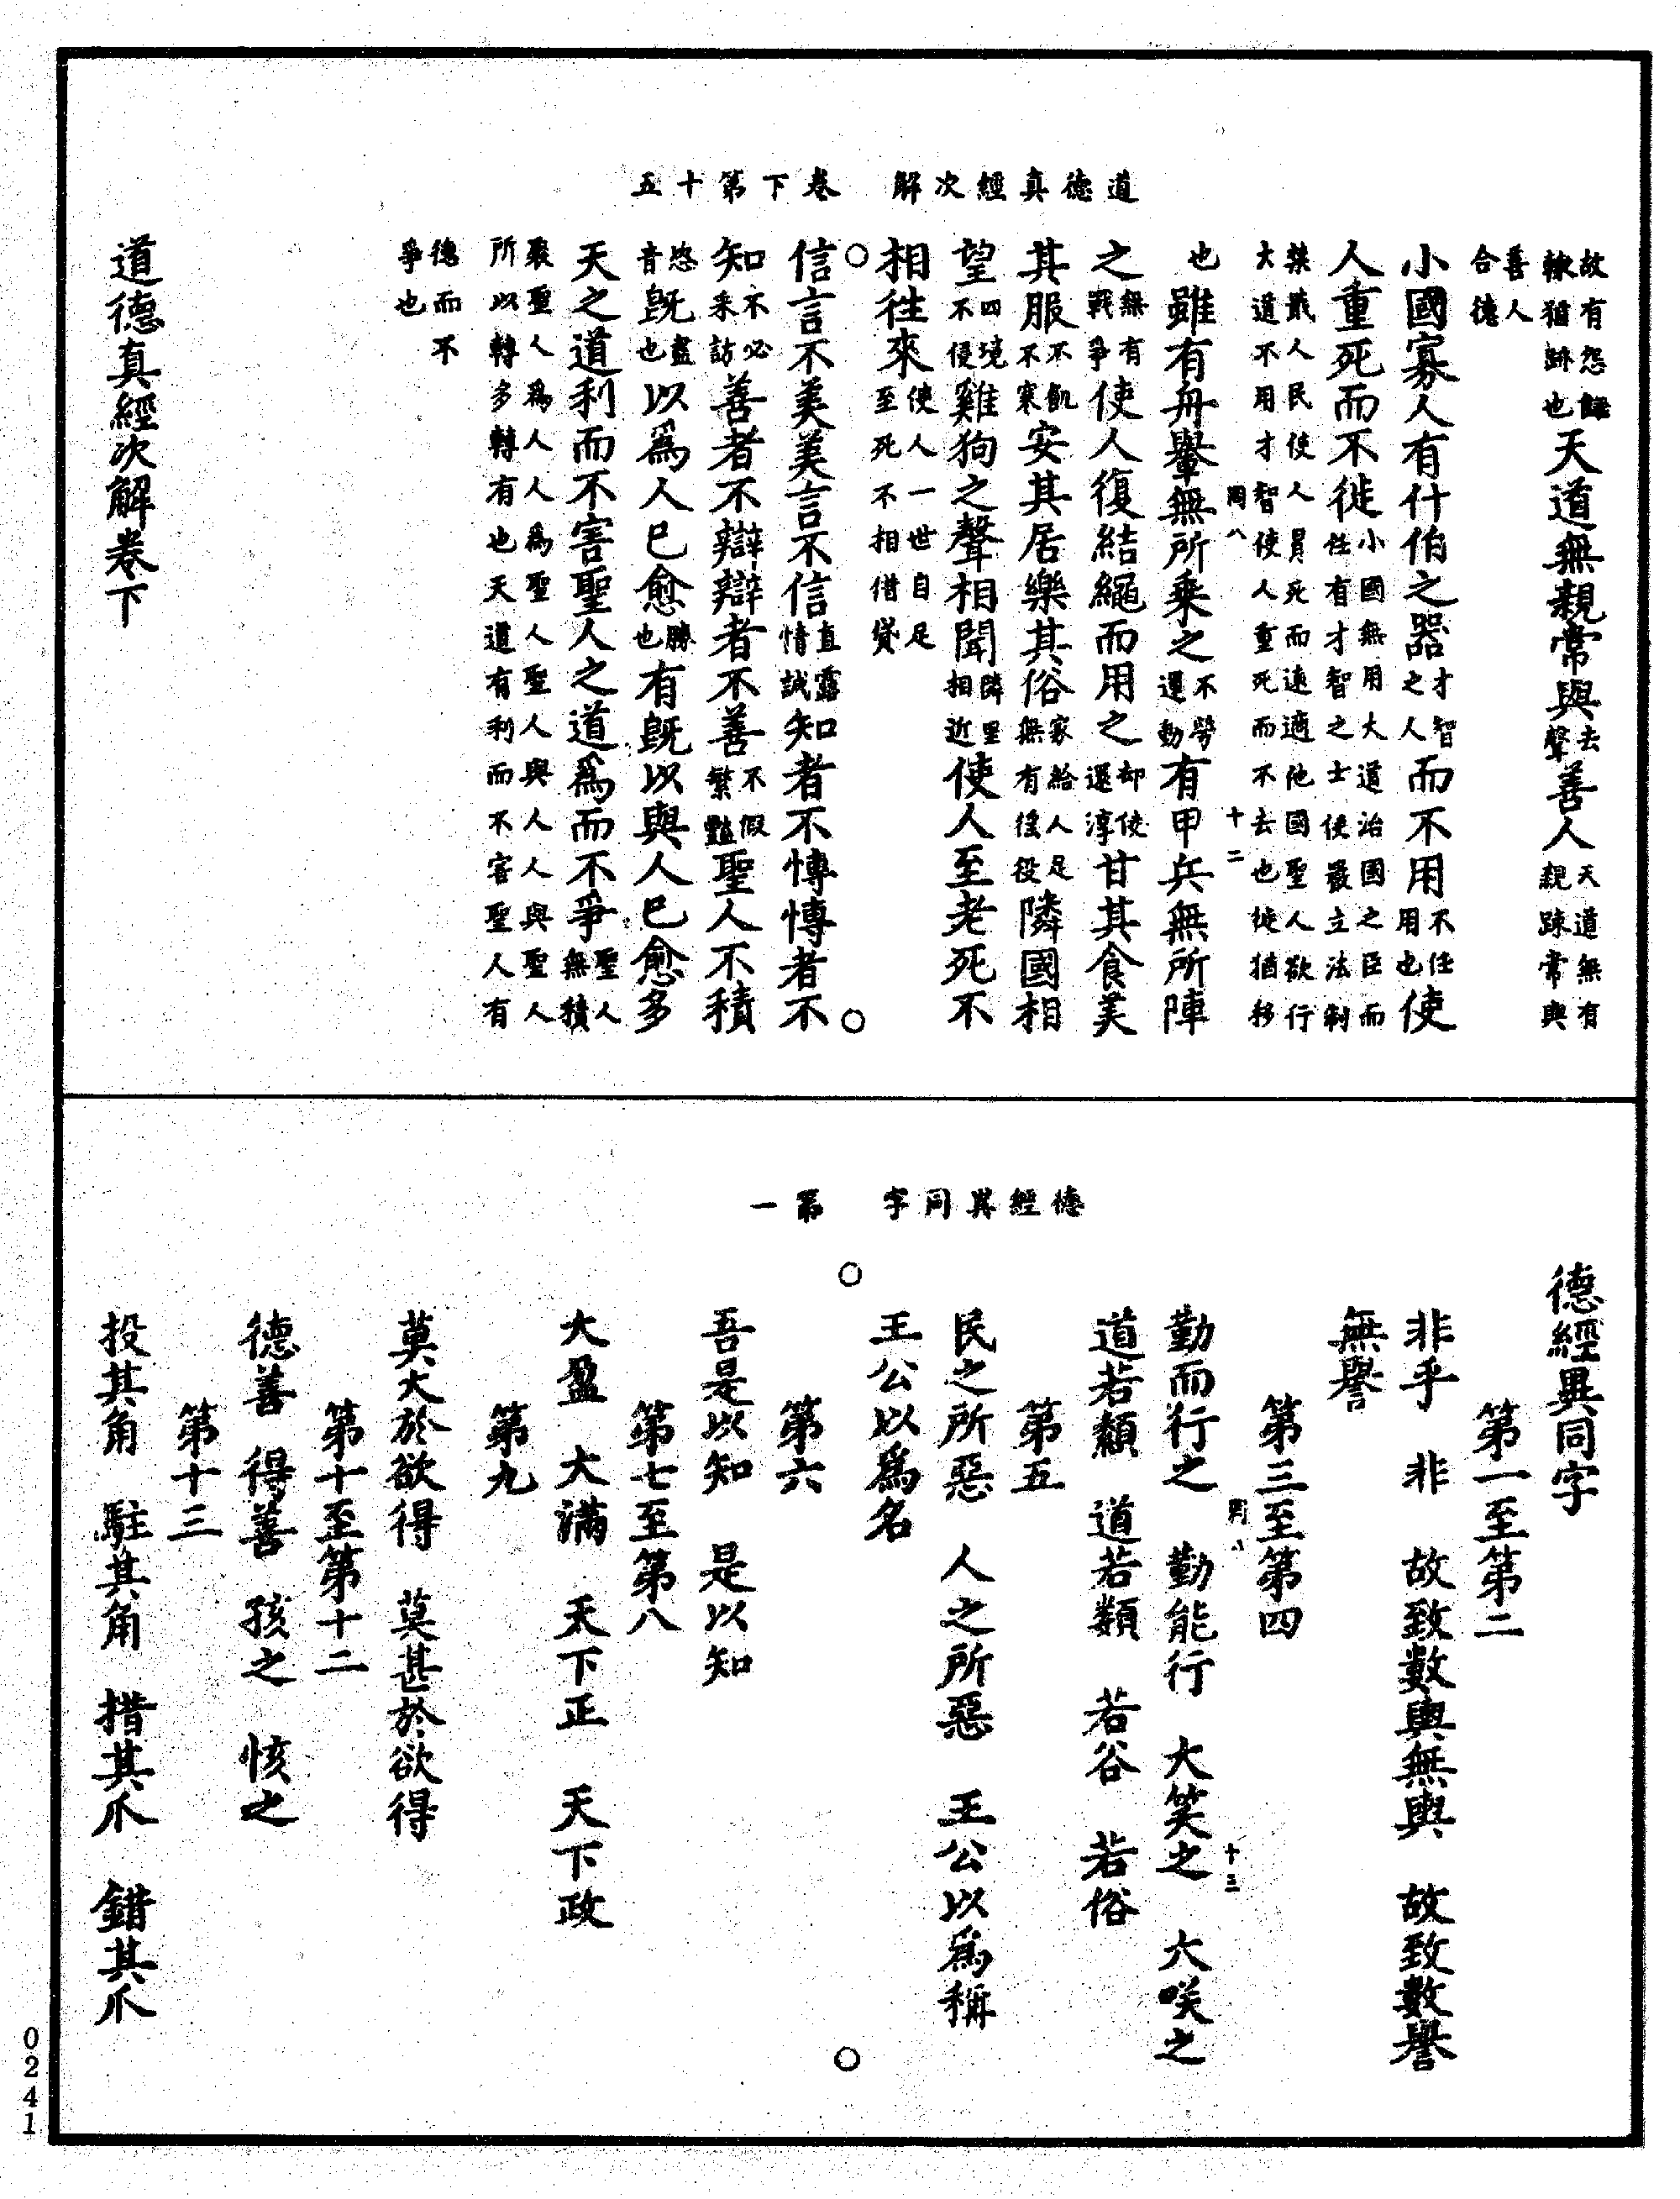 道德真經次解　卷下第十五
故有怨餘
轍猶跡也天道無親常與去聲善人天道無有親踈常與
善人合德
小國寡人有什伯之器才智之人而不用不任用也使
人重死而不徙小國無用大道治國之臣而任有才智之士使嚴立法制
禁戢人民使人冐死而遠適他國聖人欲行大道不用才智使人重死而不去也徙猶移
也雖有舟轝無所乘之不勞運動有甲兵無所陣
之無有戰爭使人復結繩而用之却使還淳甘其食美
其服不飢不寒安其居樂其俗家給人足無有徭役隣國相
望四境不侵雞狗之聲相聞隣里相近使人至老死不
相徃來使人一世自足至死不相借貸
信言不美美言不信直露情誠知者不慱慱者不
知不必采訪善者不辯辯者不善不假繁豔聖人不積
悉音既盡也以爲人已愈勝也有既以與人已愈多
天之道利而不害聖人之道爲而不爭聖人無積
聚聖人爲人人爲聖人聖人與人人與聖人所以轉多轉有也天道有利而不害聖人有
德而不爭也
道德真經次解卷下
罔八　十二
德經異同字　第一
德經異同字
第一至第二
非乎　非　故致數輿無輿　故致數譽
無譽
第三至第四
勤而行之　勤能行　大笑之　大咲之
道若纇　道若類　若谷　若俗
第五
民之所惡　人之所惡　王公以爲稱
王公以爲名
第六
吾是以知　是以知
第七至第八
大盈　大滿　天下正　天下政
第九
莫大於欲得　莫甚於欲得
第十至第十二
德善　得善　孩之　㤥之
第十三
投其角　駐其角　措其爪　錯其爪
罔八　十三
0241